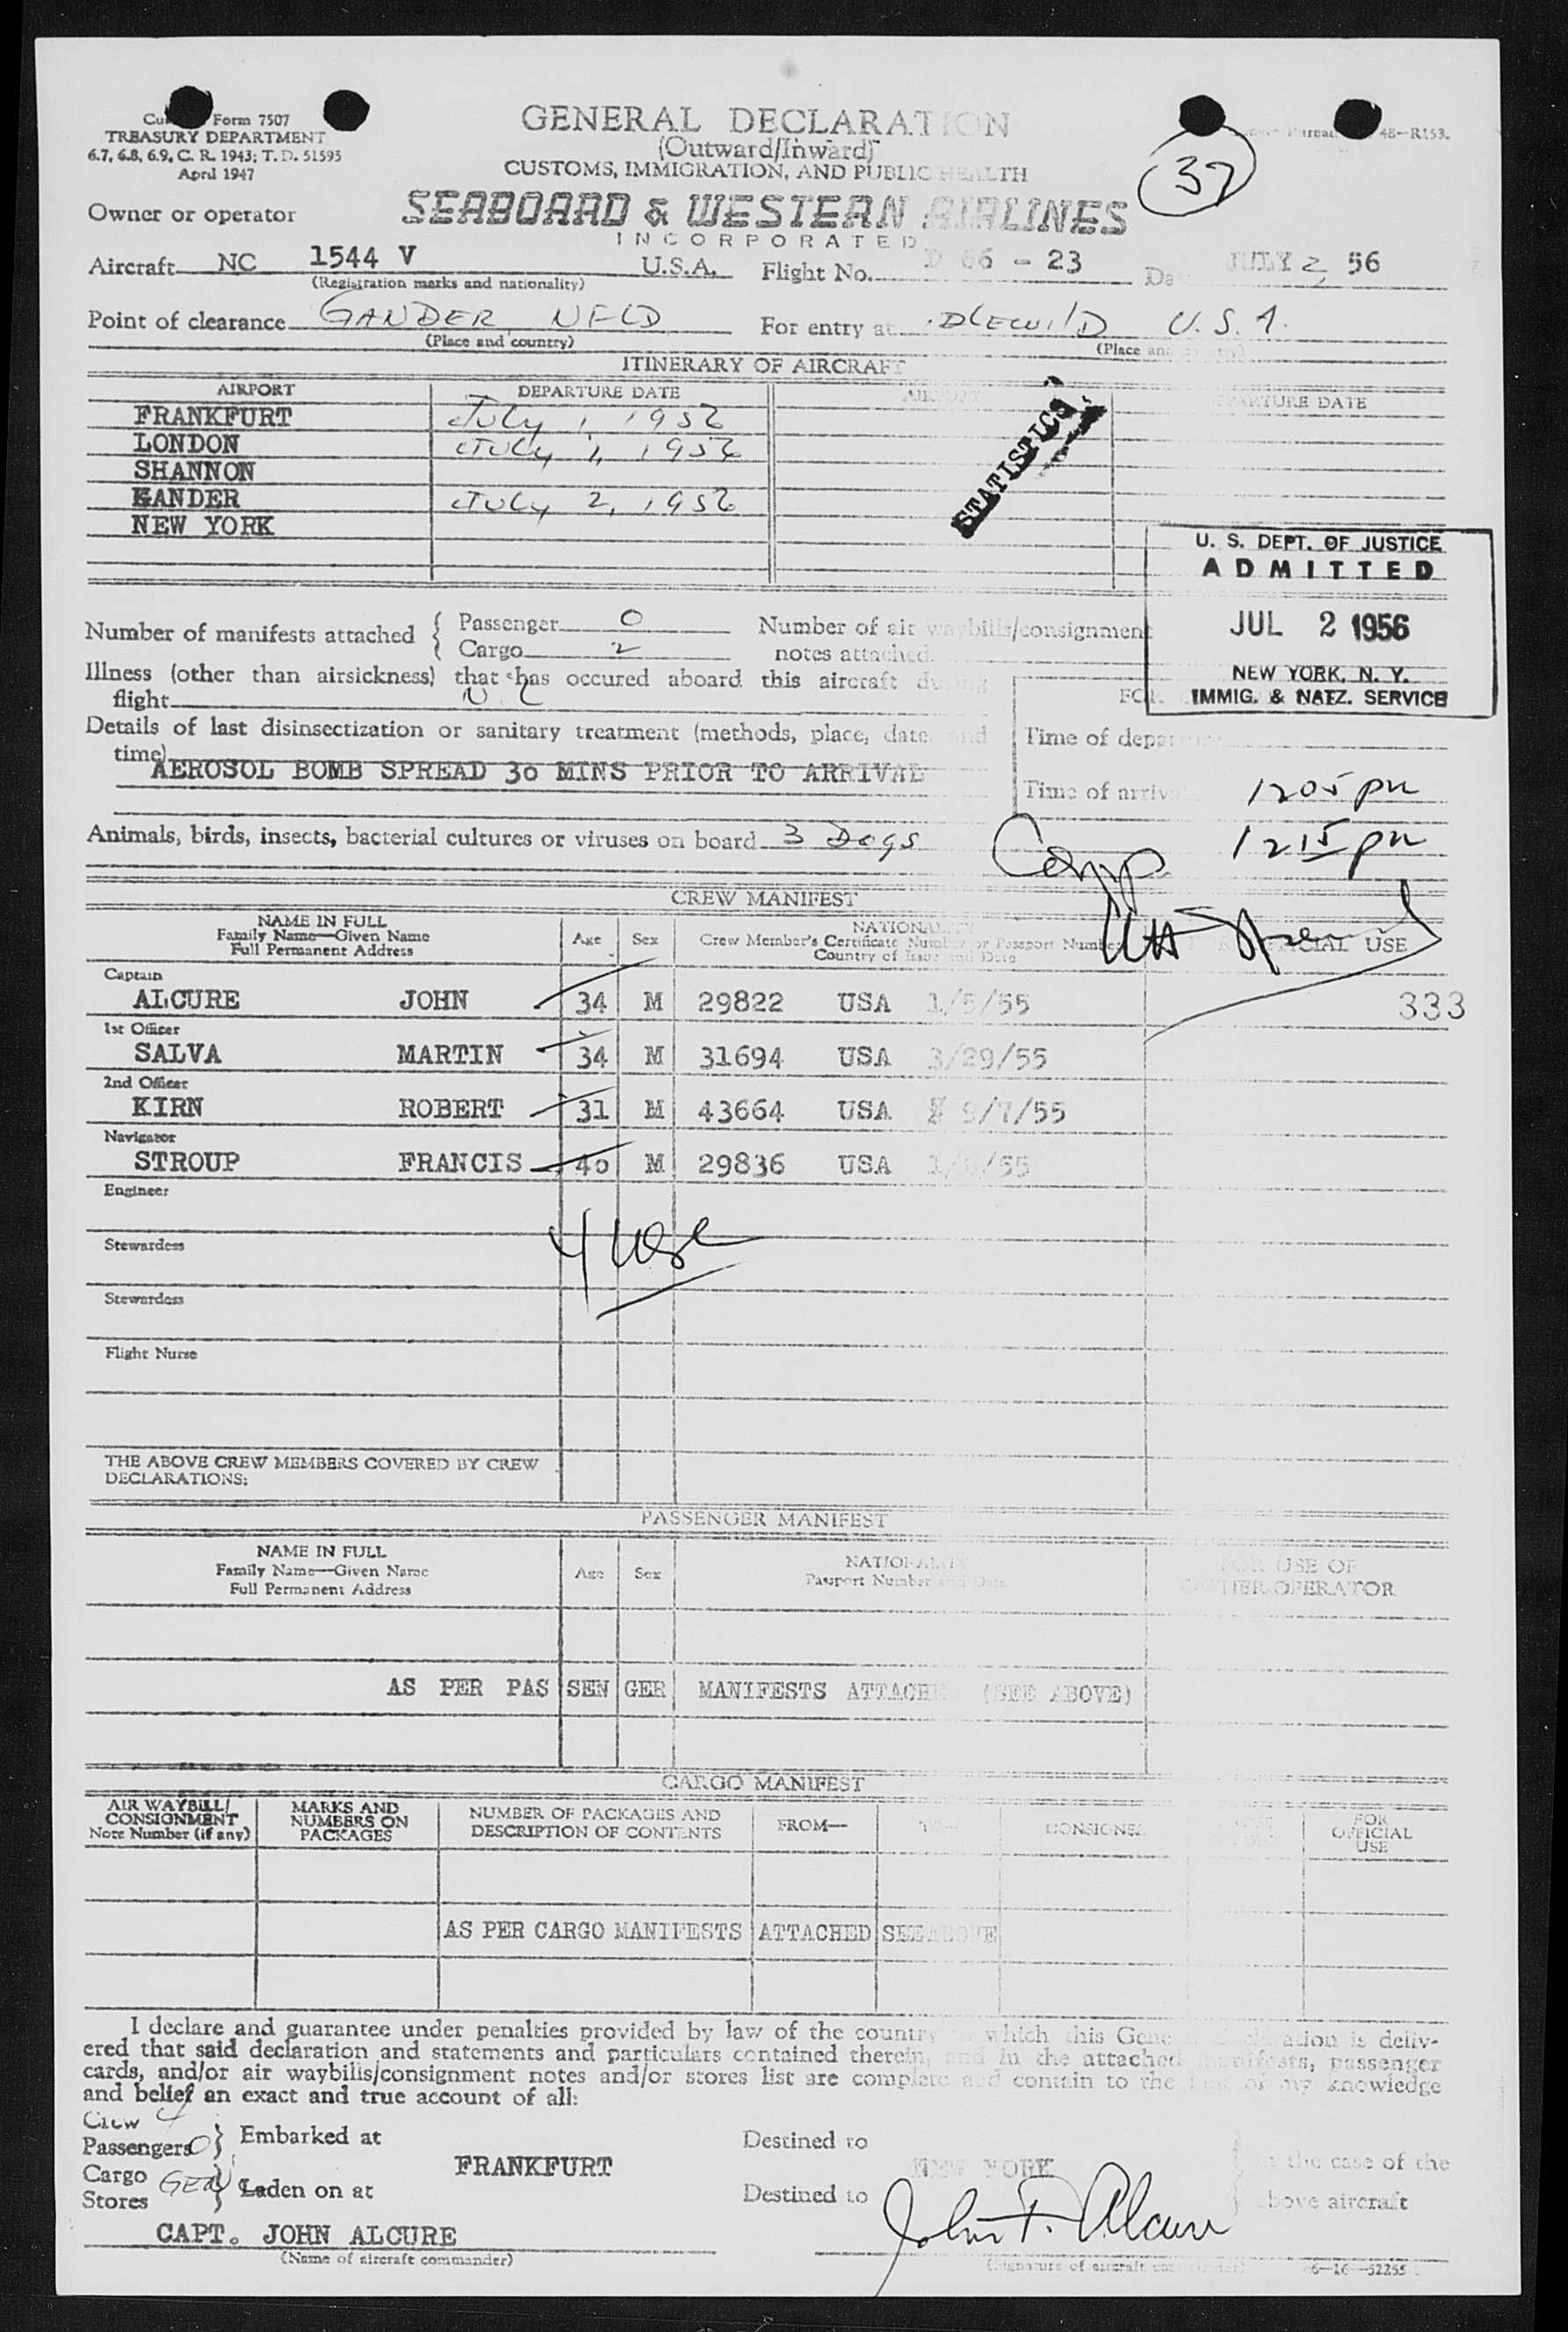 Form 7507
TREASURY DEPARTMENT
6.7, 6.8, 6.9, C. R. 1943; T. D. 51595
April 1947
GENERAL DECLARATION
(Outward/Inward)
CUSTOMS, IMMIGRATION, AND PUBLIC HEALTH
48-R153.
37
Owner or operator
SEABOARD & WESTERN AIRLINES
INCORPORATED
Aircraft NC 1544 V U.S.A. Flight No. D 66 - 23 JULY 2, 56
(Registration marks and nationality)
Point of clearance GANDER, NFLD For entry at IDLEWILD U. S. A.
(Place and country)
ITINERARY OF AIRCRAFT
AIRPORT DEPARTURE DATE AIRPORT DEPARTURE DATE
FRANKFURT July 1, 1956
LONDON July 1, 1956
SHANNON
GANDER July 2, 1956
NEW YORK
STATISTICS
U. S. DEPT. OF JUSTICE
ADMITTED
JUL 2 1956
NEW YORK, N. Y.
IMMIG. & NATZ. SERVICE
Number of manifests attached { Passenger 0 Number of air waybills/consignment
Cargo 2 notes attached
Illness (other than airsickness) that has occured aboard this aircraft during
flight
Details of last disinsectization or sanitary treatment (methods, place, date, and
time)
AEROSOL BOMB SPREAD 30 MINS PRIOR TO ARRIVAL
Time of departure
Time of arrival 1205 pm
1215 pm
Animals, birds, insects, bacterial cultures or viruses on board 3 Dogs
CREW MANIFEST
NAME IN FULL
Family Name—Given Name
Full Permanent Address
Age Sex
NATIONALITY
Crew Member's Certificate Number or Passport Number
Country of Issue and Date
FOR OFFICIAL USE
Captain
ALCURE JOHN 34 M 29822 USA 1/5/55 333
1st Officer
SALVA MARTIN 34 M 31694 USA 3/29/55
2nd Officer
KIRN ROBERT 31 M 43664 USA 9/7/55
Navigator
STROUP FRANCIS 40 M 29836 USA
Engineer
4 USC
Stewardess
Stewardess
Flight Nurse
THE ABOVE CREW MEMBERS COVERED BY CREW
DECLARATIONS:
PASSENGER MANIFEST
NAME IN FULL
Family Name—Given Name
Full Permanent Address
Age Sex
NATIONALITY
Passport Number and Date
FOR USE OF
OWNER/OPERATOR
AS PER PAS SEN GER MANIFESTS ATTACHED (SEE ABOVE)
CARGO MANIFEST
AIR WAYBILL/
CONSIGNMENT
Note Number (if any)
MARKS AND
NUMBERS ON
PACKAGES
NUMBER OF PACKAGES AND
DESCRIPTION OF CONTENTS
FROM— TO— CONSIGNEE
FOR
OFFICIAL
USE
AS PER CARGO MANIFESTS ATTACHED SEE ABOVE
I declare and guarantee under penalties provided by law of the country in which this General Declaration is deliv-
ered that said declaration and statements and particulars contained therein, and in the attached manifests, passenger
cards, and/or air waybills/consignment notes and/or stores list are complete and contain to the best of my knowledge
and belief an exact and true account of all:
Crew 4
Passengers 0 } Embarked at Destined to
FRANKFURT NEW YORK in the case of the
Cargo
Stores } Laden on at Destined to above aircraft
CAPT. JOHN ALCURE John F. Alcure
(Name of aircraft commander) (Signature of aircraft commander)